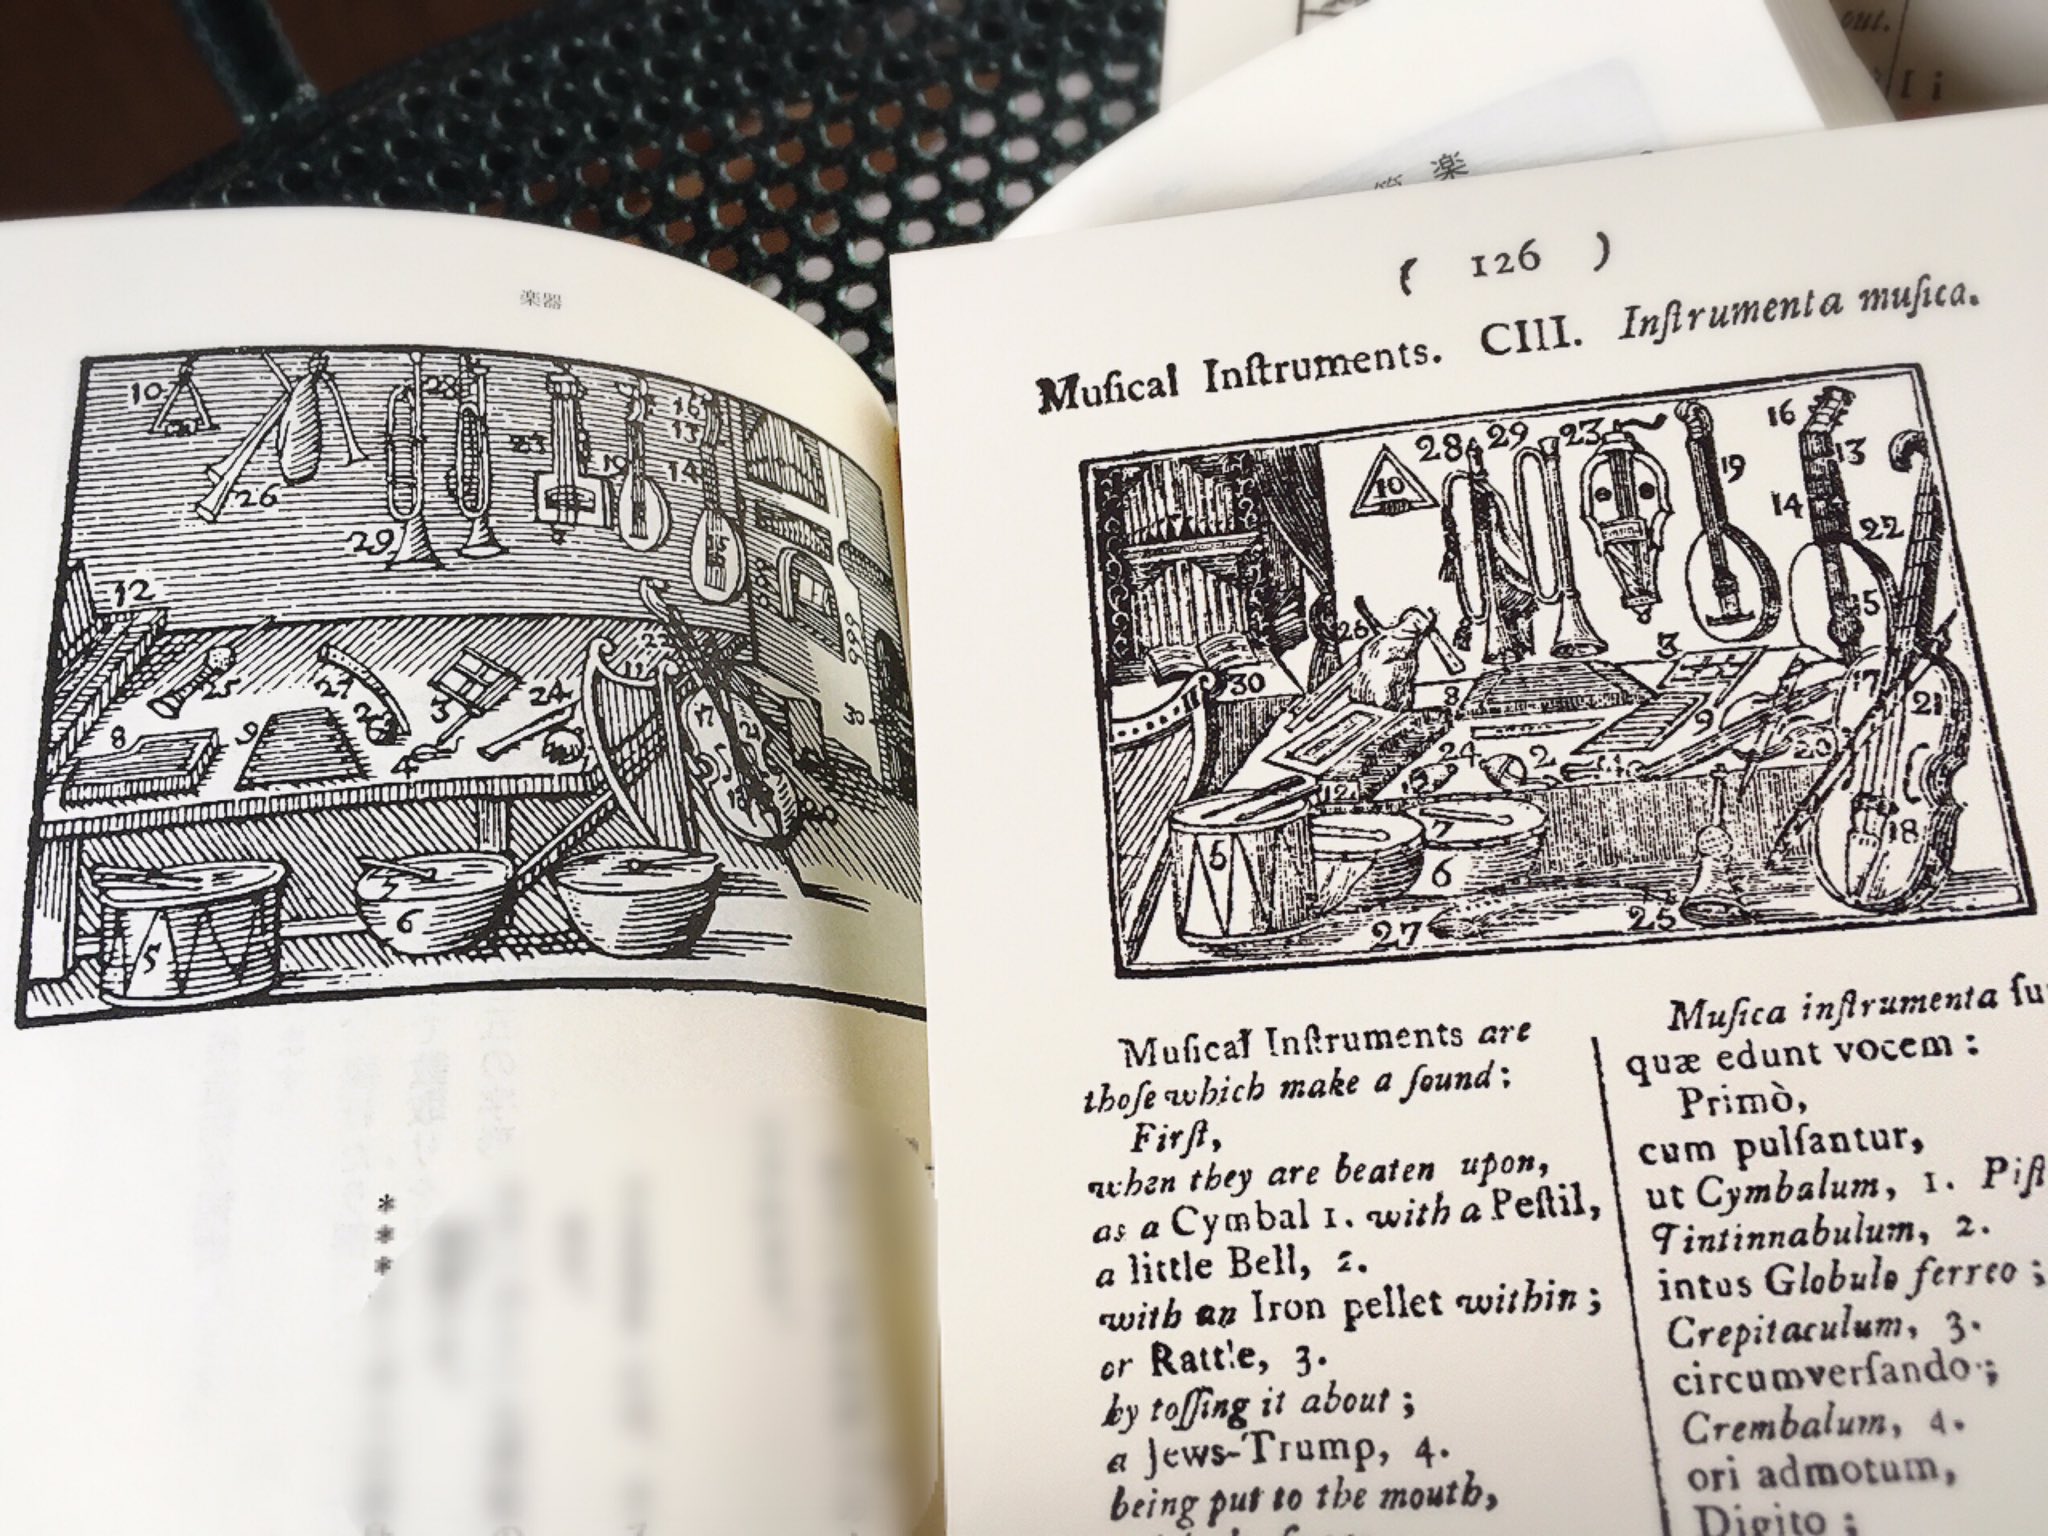 楽器
10
26
28
29
23
19
16
13
14
12
25
27
3
24
8
9
4
11
17
21
18
20
5
7
6
out.
li
楽
( 126 )
Muſical Inſtruments. CIII. Inſtrumenta muſica.
10
28
29
23
19
16
13
14
22
15
26
30
11
8
3
9
17
21
24
2
20
12
5
7
6
18
27
25
Muſical Inſtruments are
thoſe which make a ſound;
Firſt,
when they are beaten upon,
as a Cymbal 1. with a Peſtil,
a little Bell, 2.
with an Iron pellet within;
or Rattle, 3.
by toſſing it about;
a Jews-Trump, 4.
being put to the mouth,
Muſica inſtrumenta ſu
quæ edunt vocem:
Primò,
cum pulſantur,
ut Cymbalum, 1. Piſt
Tintinnabulum, 2.
intus Globulo ferreo;
Crepitaculum, 3.
circumverſando;
Crembalum, 4.
ori admotum,
Digito;
***